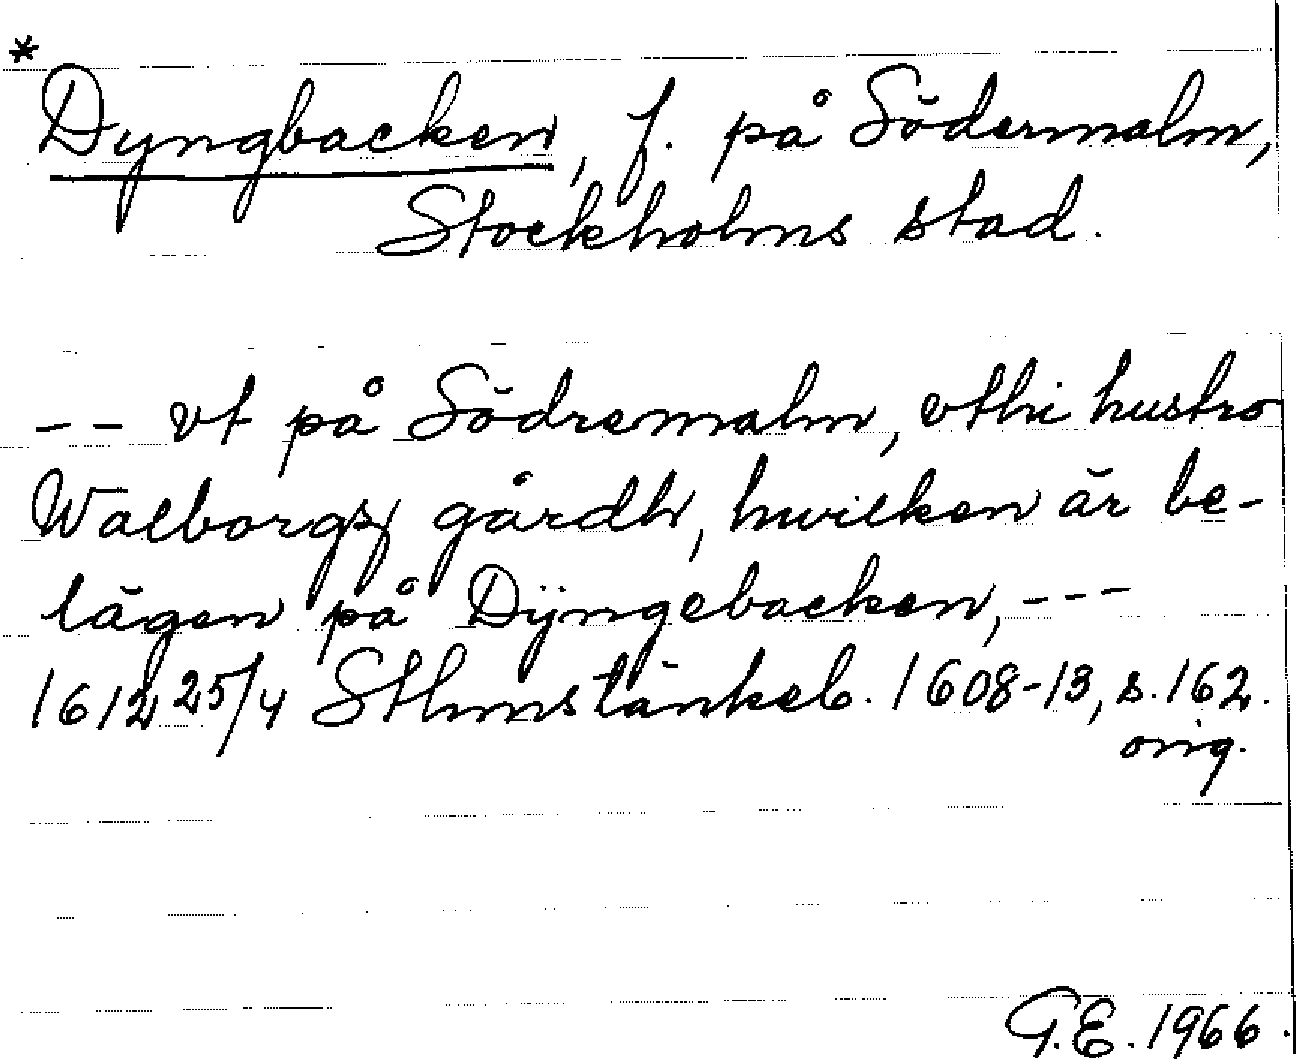 * Dyngbacken, f. på Södermalm,
Stockholms stad.
-- vt på Södremalm, vthi hustro
Walborgz gårdh, hwilken är be-
lägen på Dÿngebacken, ---
1612 25/4 Sthmstänkeb. 1608-13, s. 162.
orig.
G.E. 1966.